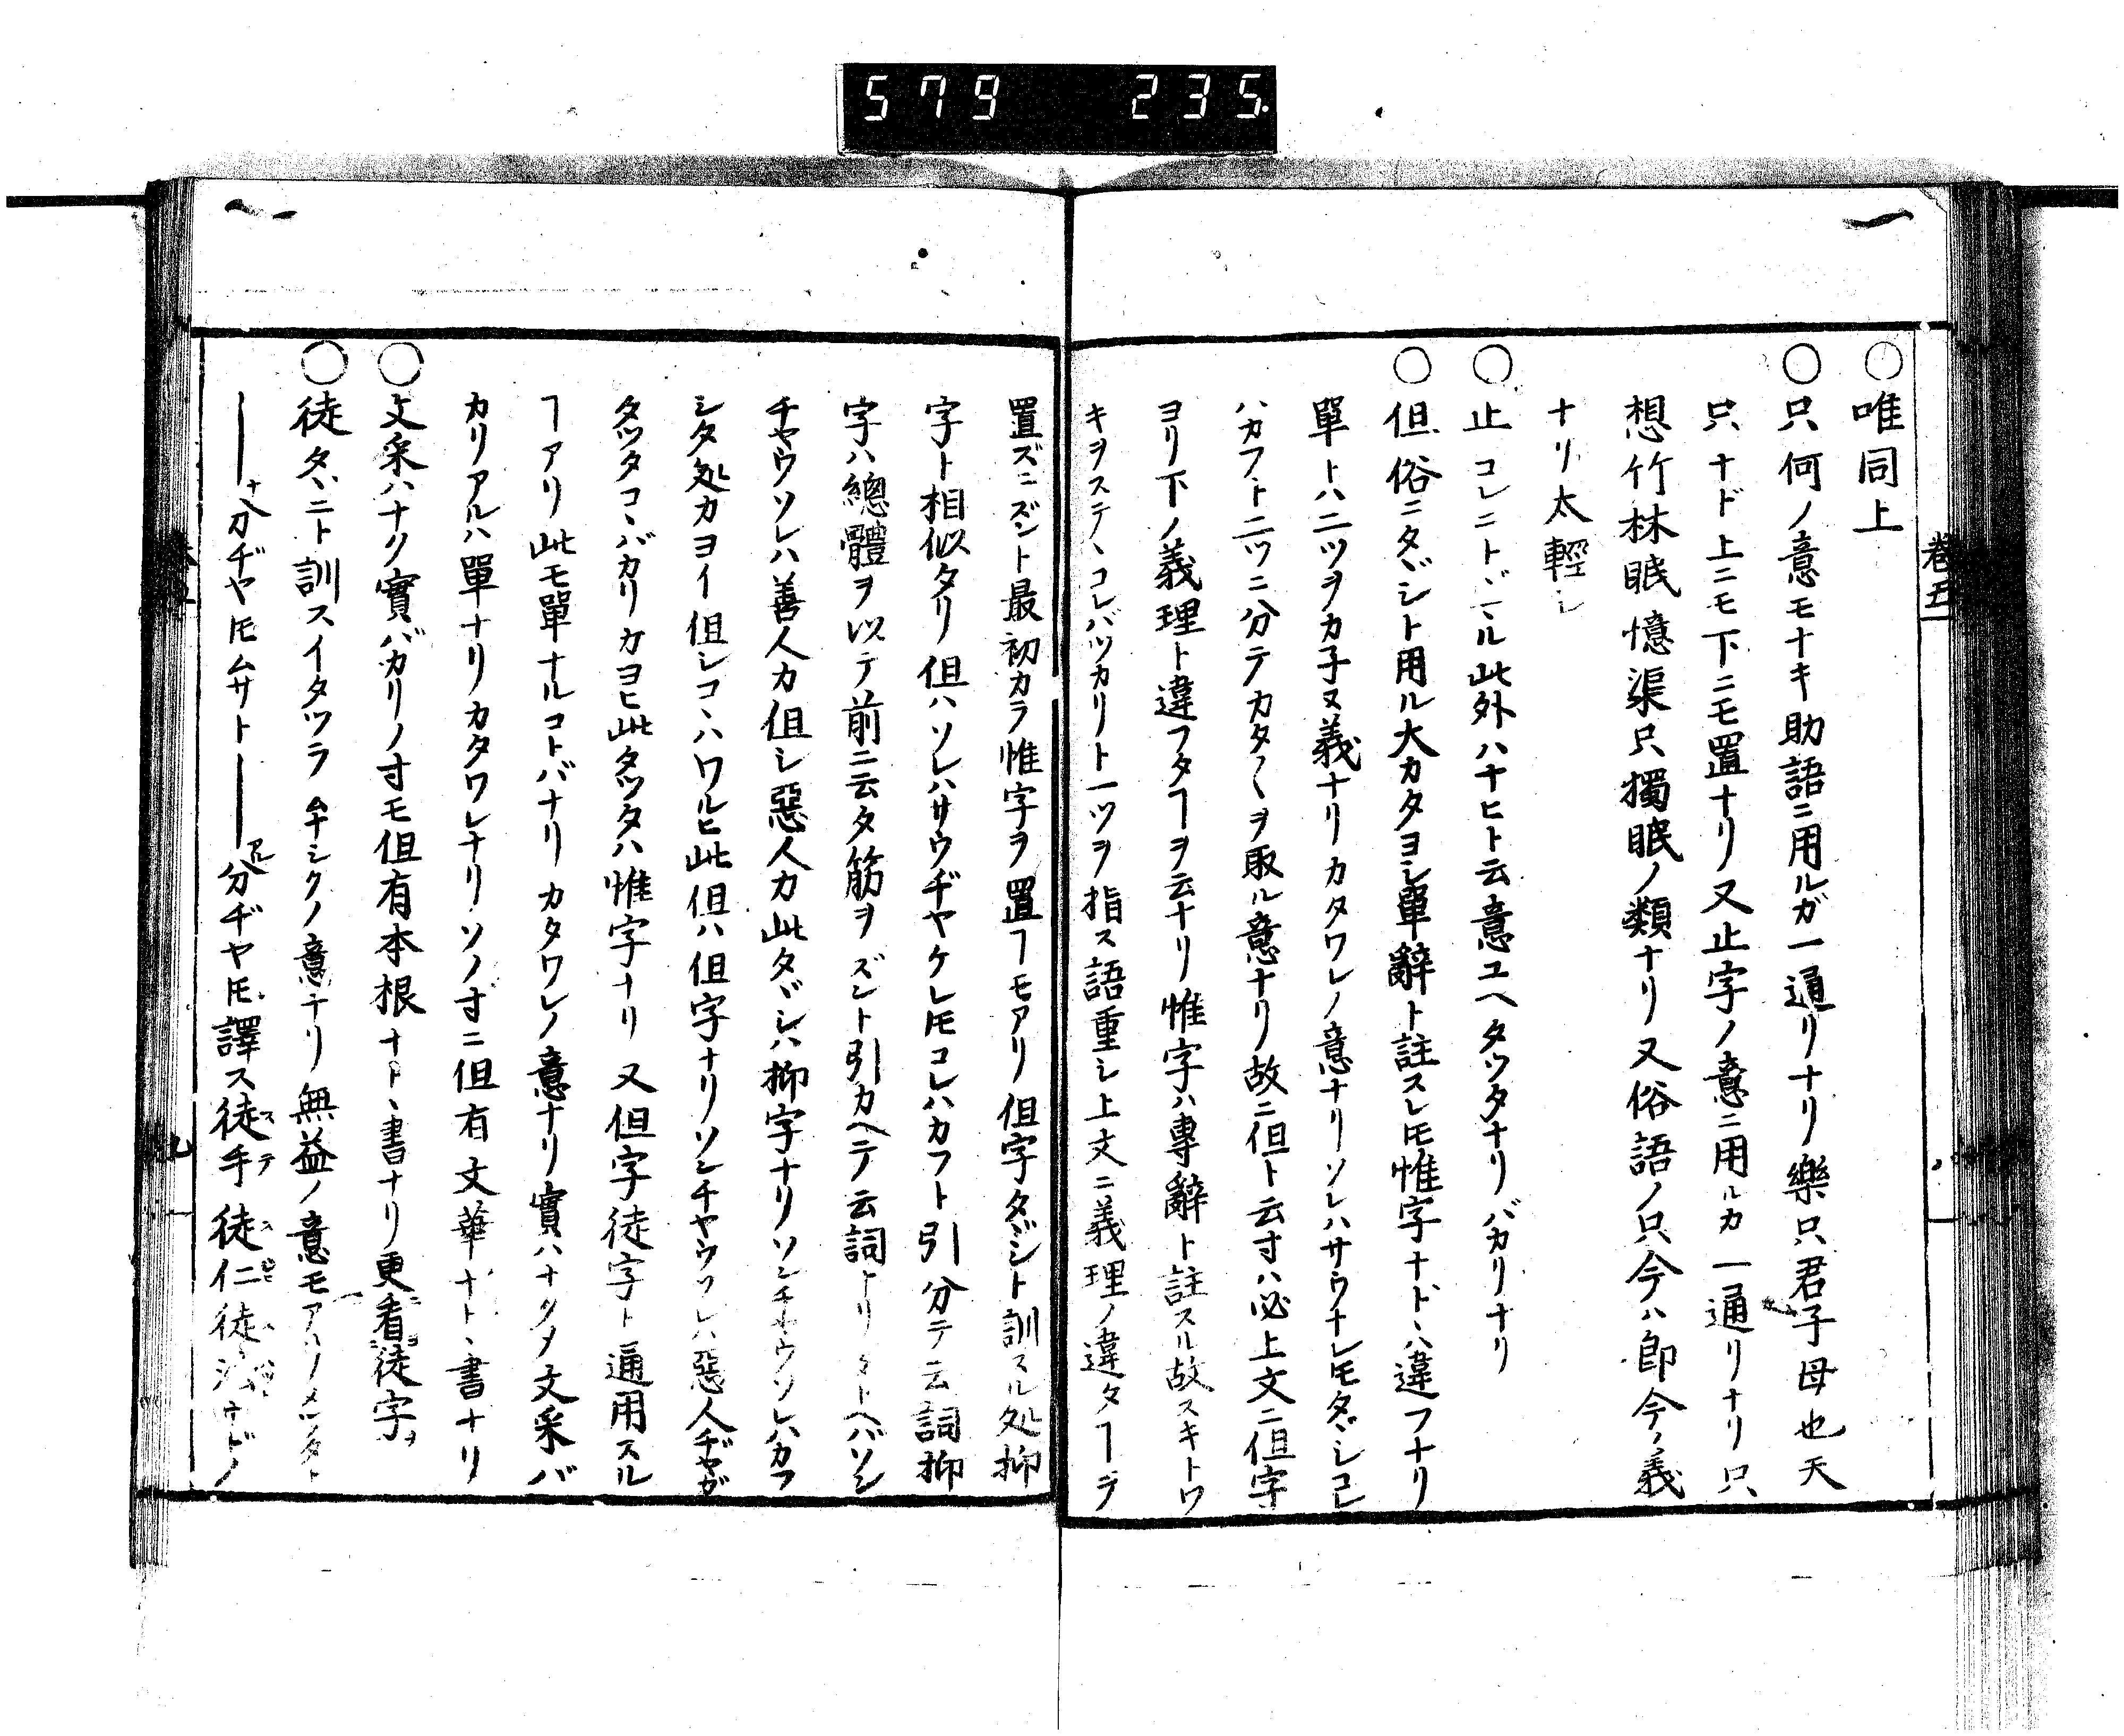 579 235
一
卷五
○唯同上
○只何ノ意モナキ助語ニ用ルガ一通リナリ樂只君子母也天
只ナド上ニモ下ニモ置ナリ又止字ノ意ニ用ルカ一通リナリ只
想竹林眠憶渠只獨眠ノ類ナリ又俗語ノ只今ハ即今ノ義
ナリ太輕シ
○止コレニトヾマル此外ハナヒト云意ユヘタッタナリバカリナリ
○但俗ニタヾシト用ル大カタヨシ單辭ト註スレ𪜈惟字ナドヽハ違フナリ
單トハ二ツヲカ子ヌ義ナリカタワレノ意ナリソレハサウナレ𪜈タヾシコレ
ハカフト二ツニ分テカタ〱ヲ取ル意ナリ故ニ但ト云寸ハ必上文ニ但字
ヨリ下ノ義理ト違フタヿヲ云ナリ惟字ハ專辭ト註スル故スキトワ
キヲステヽコレバッカリト一ツヲ指ス語重シ上文ニ義理ノ違タヿヲ
置ズニズント最初カラ惟字ヲ置ヿモアリ但字タヾシト訓スル処抑
字ト相似タリ但ハソレハサウヂヤケレ𪜈コレハカフト引分テ云詞抑
字ハ總體ヲ以テ前ニ云タ筋ヲズント引カヘテ云詞ナリタトヘバソシ
チヤウソレハ善人カ但シ惡人カ此タヾシハ抑字ナリソンチヤウソレハカフ
シタ処カヨイ但シコヽハワルヒ此但ハ但字ナリソンチヤウソレハ惡人ヂヤガ
タッタコヽバカリカヨヒ此タッタハ惟字ナリ又但字徒字ト通用スル
ヿアリ此モ單ナルコトバナリカタワレノ意ナリ實ハナクノ文采バ
カリアルハ單ナリカタワレナリソノ寸ニ但有文華ナトヽ書ナリ
○文采ハナク實バカリノ寸モ但有本根ナトヽ書ナリ更看徒字ヲ
○徒タヾニト訓スイタツラムナシクノ意ナリ無益ノ意モアハ
一
十八分ヂヤ𪜈ムサト――分ヂヤ𪜈譯ス徒手徒仁徒